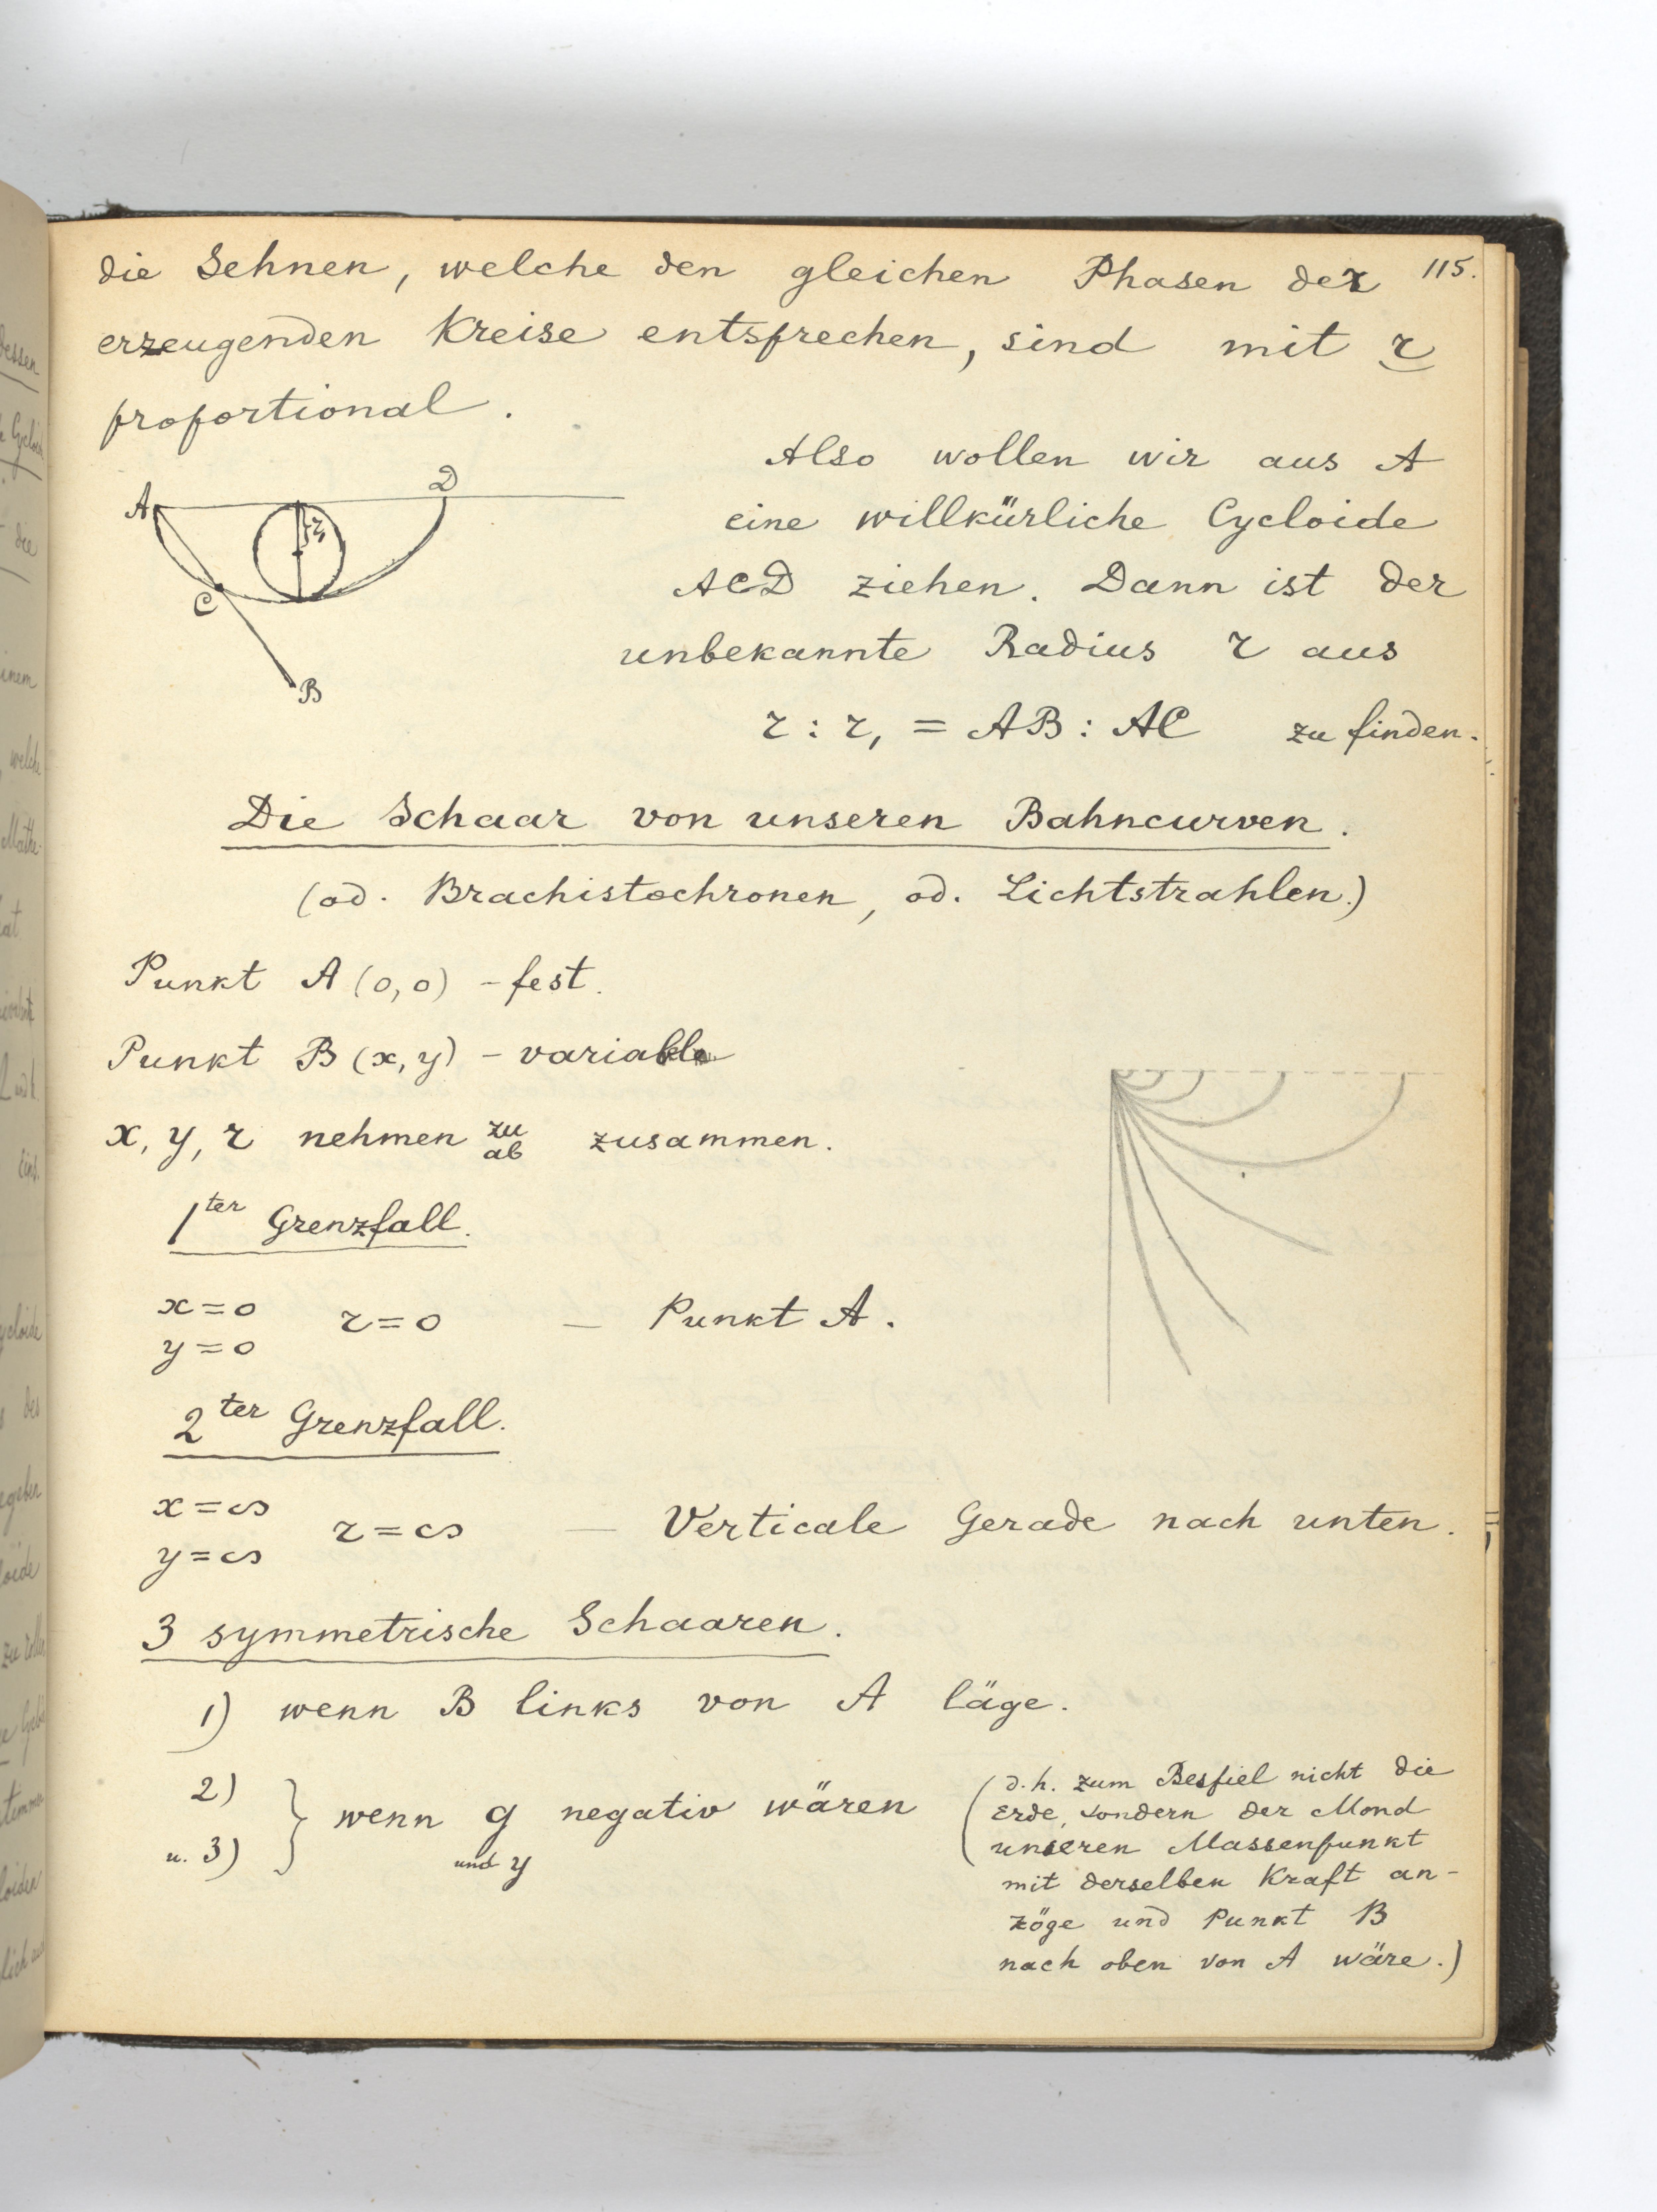 115.
die Sehnen, welche den gleichen Phasen der
erzeugenden Kreise entsprechen, sind mit r
proportional.
Also wollen wir aus A
eine willkürliche Cycloide
ACD ziehen. Dann ist der
unbekannte Radius r aus
r : r, = AB : AC zu finden.
A
D
r,
C
B
Die Schaar von unseren Bahncurven.
(od. Brachistochronen, od. Lichtstrahlen.)
Punkt A (0,0) - fest.
Punkt B (x, y) - variable
x, y, r nehmen zu zusammen.
ab
1ter Grenzfall.
x = 0
y = 0
r = 0 — Punkt A.
2ter Grenzfall.
x = ∞
y = ∞
r = ∞ — Verticale Gerade nach unten.
3 symmetrische Schaaren.
1) wenn B links von A läge.
2)
u. 3)
} wenn g negativ wären
und y
(d.h. zum Bespiel nicht die
Erde, sondern der Mond
unseren Massenpunkt
mit derselben Kraft an-
zöge und Punkt B
nach oben von A wäre.)